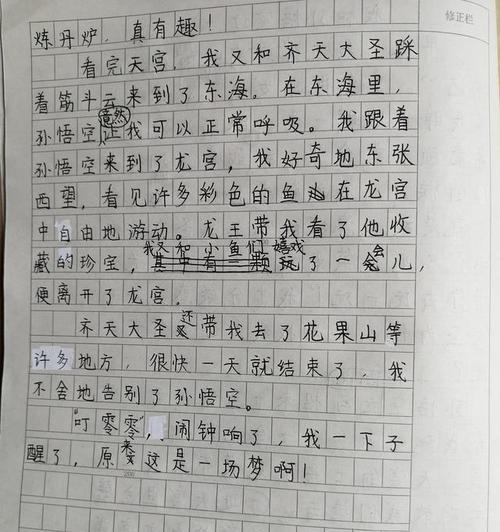 修正栏
炼丹炉，真有趣！
看完天宫，我又和齐天大圣踩
着筋斗云来到了东海。在东海里，
孙悟空竟然让我可以正常呼吸。我跟着
孙悟空来到了龙宫，我好奇地东张
西望，看见许多彩色的鱼在龙宫
中自由地游动。龙王带我看了他收
藏的珍宝，我又和小鱼们嬉戏玩了一会儿，
便离开了龙宫。
齐天大圣还带我去了花果山等
许多地方，很快一天就结束了，我
不舍地告别了孙悟空。
“叮零零”，闹钟响了，我一下子
醒了，原来这是一场梦啊！